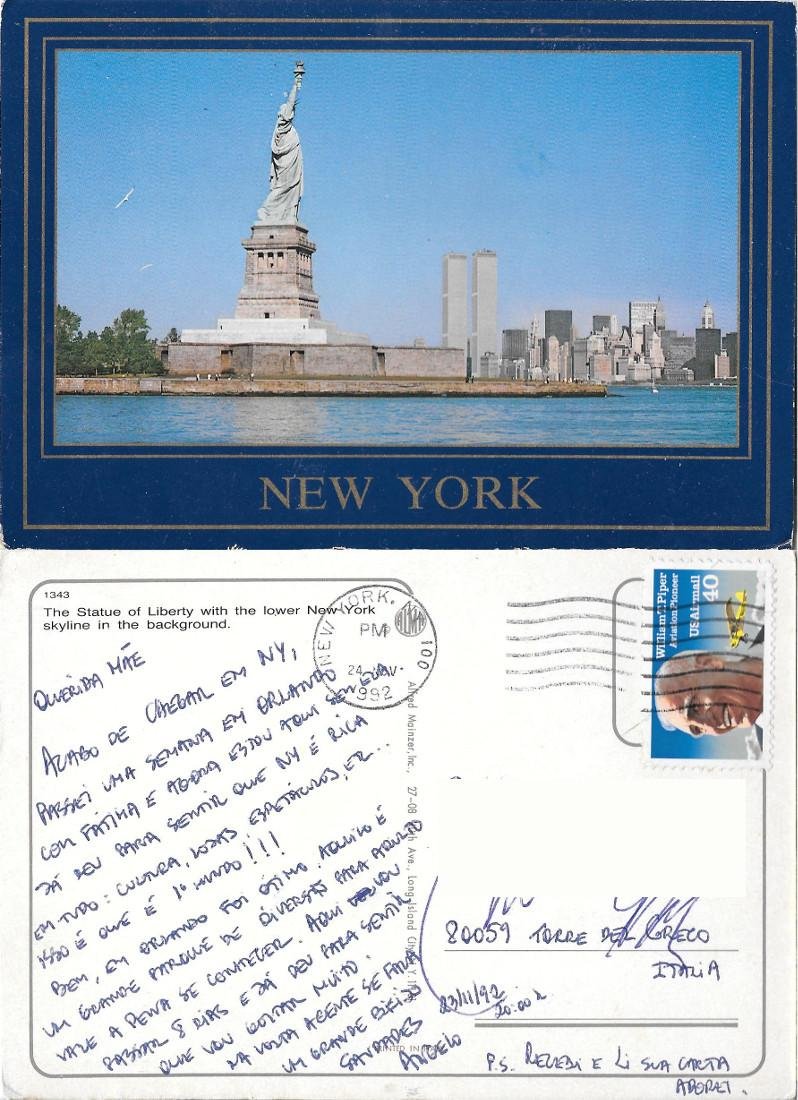 NEW YORK
1343
The Statue of Liberty with the lower New York
skyline in the background.
NEW YORK, 100
PM
24
992
William T. Piper
Aviation Pioneer
USAirmail
40
QUERIDA MÃE
ACABO DE CHEGAR EM NY,
PASSEI UMA SEMANA EM ORLANDO
COM FÁTIMA E AGORA ESTOU AQUI SEM ELA
JÁ DEU PARA SENTIR QUE NY É RICA
EM TUDO: CULTURA, LOJAS ESPETÁCULOS, ETC...
ISSO É QUE É 1º MUNDO!!!
BEM, EM ORLANDO FOI ÓTIMO. AQUILO É
UM GRANDE PARQUE DE DIVERSÃO PARA ADULTO
VALE A PENA SE CONHECER. AQUI VOU
PASSAR 8 DIAS E JÁ DEU PARA SENTIR
QUE VOU GOSTAR MUITO.
NA VOLTA AGENTE SE FALA
UM GRANDE BEIJO
SAUDADES
ANGELO
Alfred Mainzer, Inc., 27-08 Ave., Long Island City, N.Y.
PRINTED IN
80059 TORRE DEL GRECO
ITALIA
23/11/92
20:00
P.S. RECEBI E LI SUA CARTA
ADOREI.